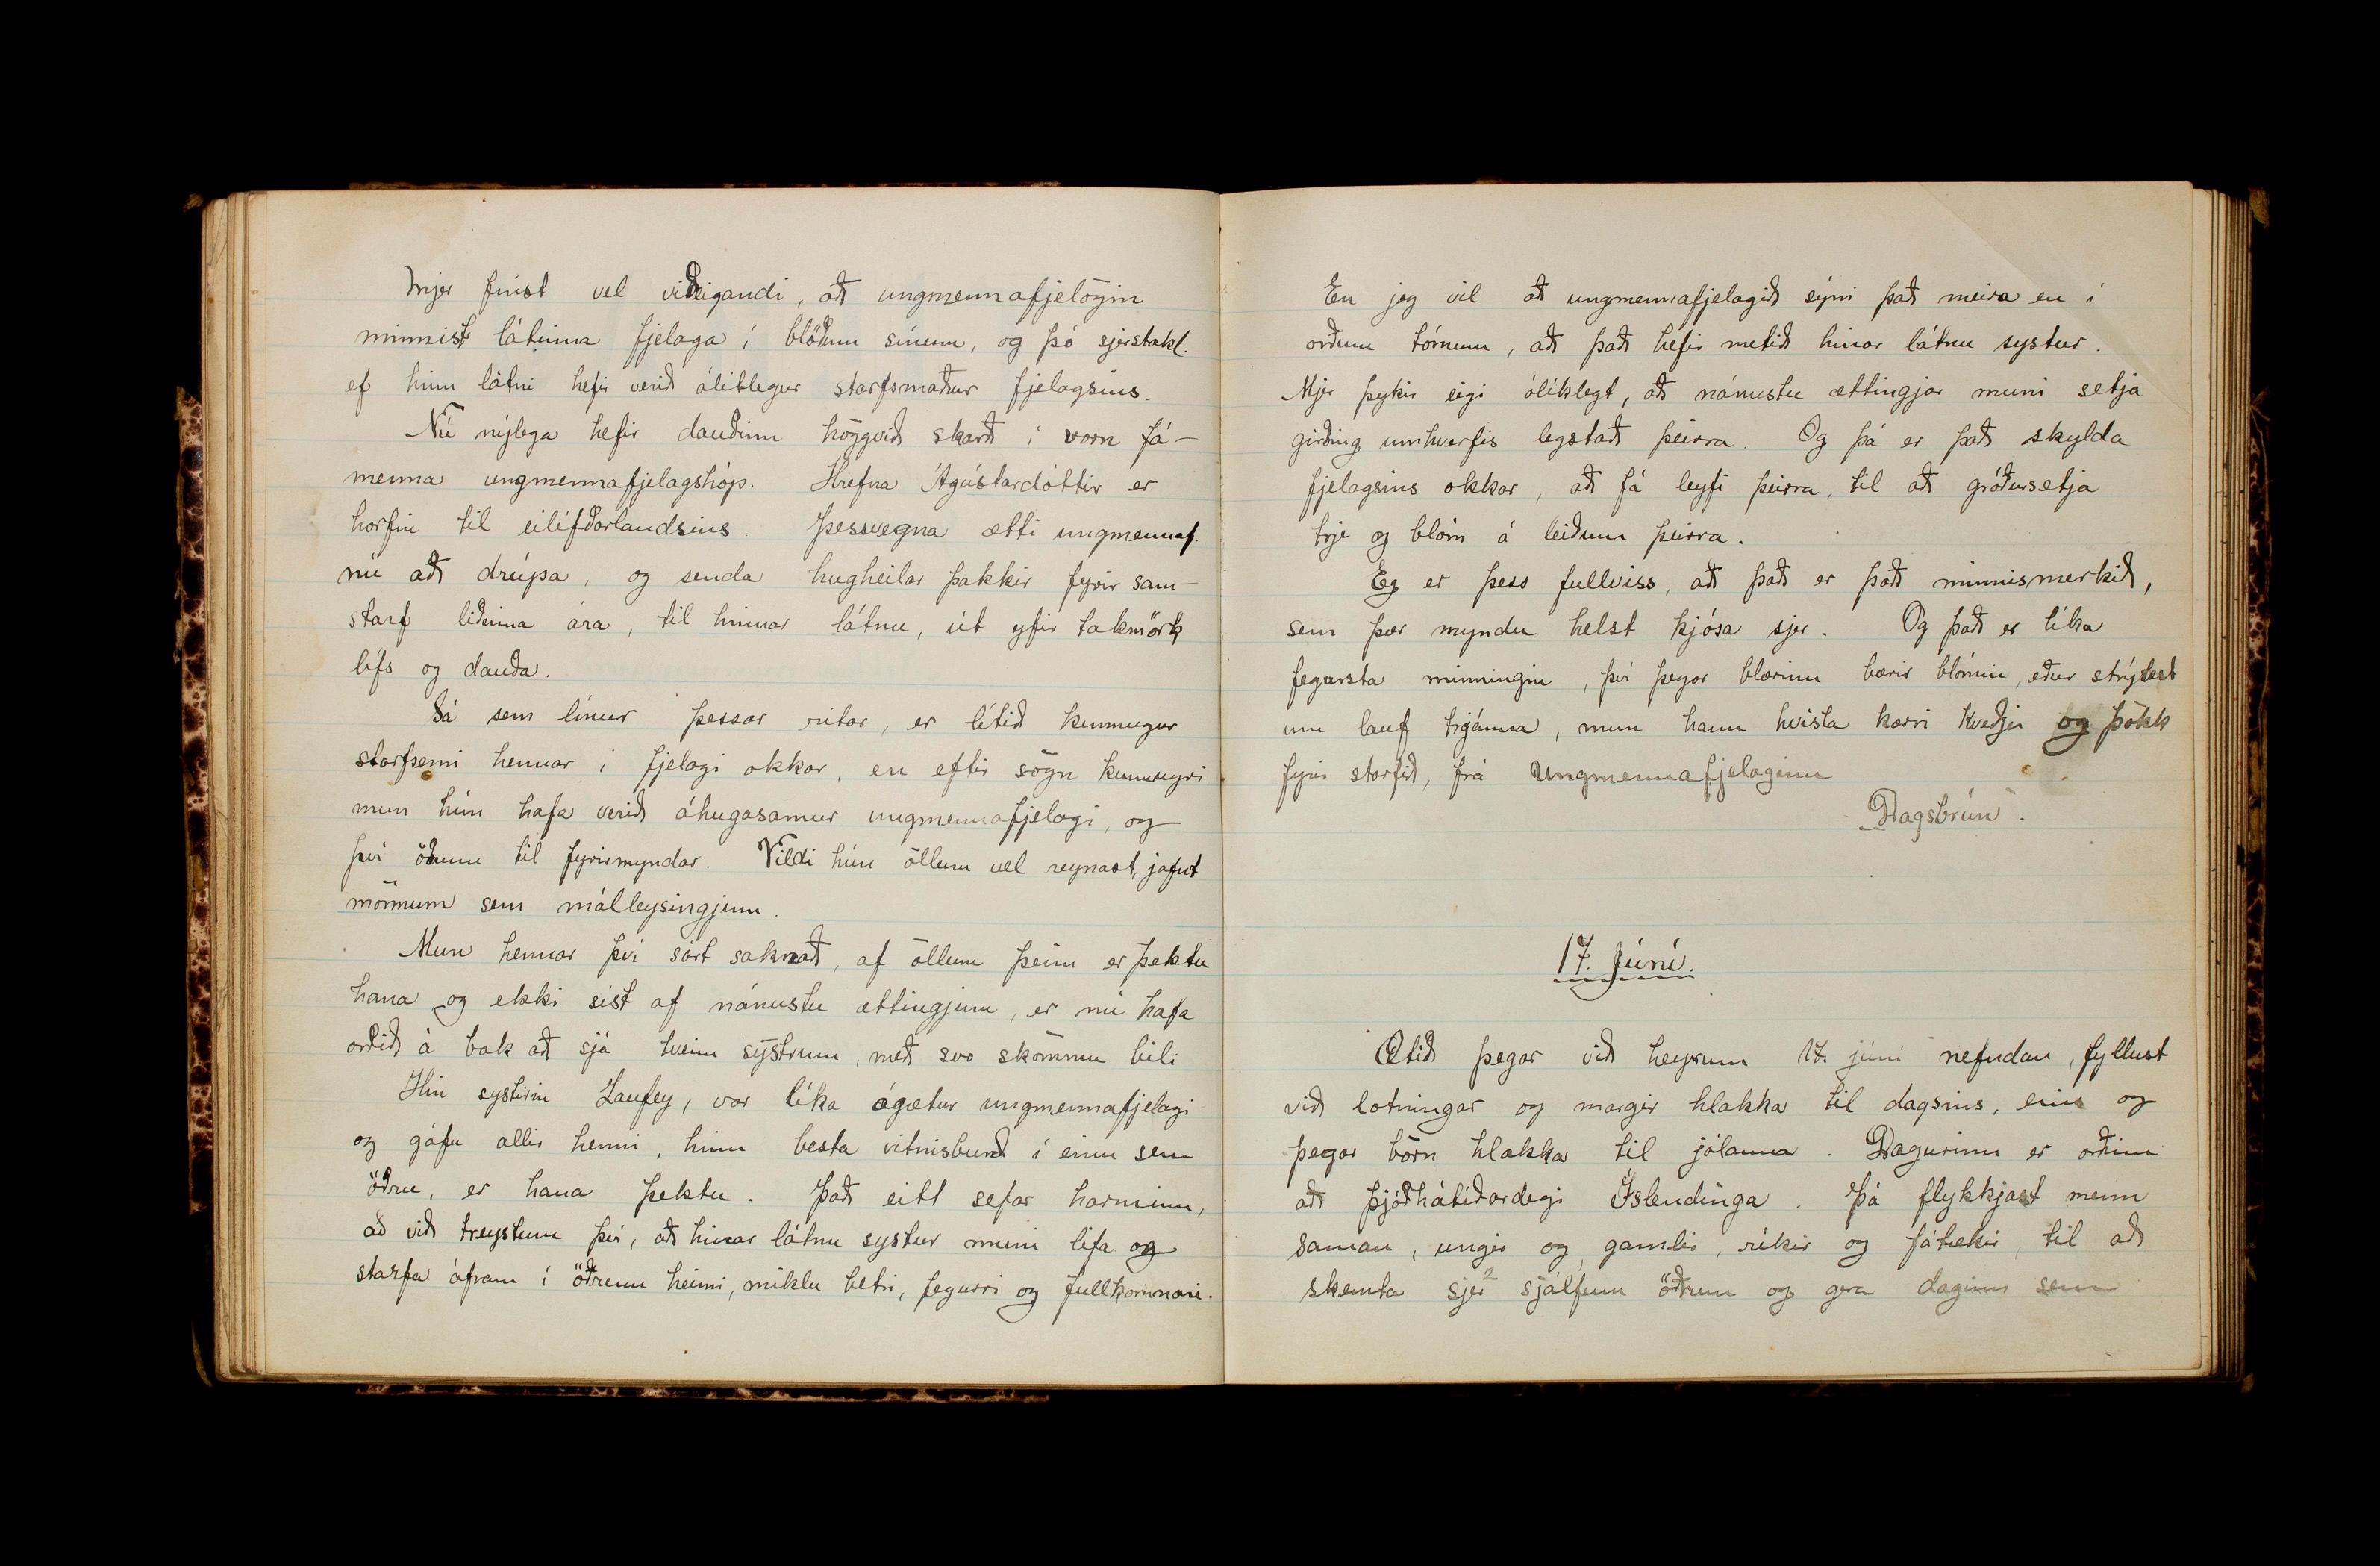 Mjer finst vel viðeigandi, að ungmennafjelögin
minnist látinna fjelaga í blöðum sínum, og þó sjerstakl.
ef hinn látni hefir verið álitlegur starfsmaður fjelagsins.
Nú nýlega hefir dauðinn höggvið skarð í vorn fá-
menna ungmennafjelagshóp. Hrefna Ágústardóttir er
horfin til eilífðarlandsins. Þessvegna ætti ungmennaf.
nú að drúpa, og senda hugheilar þakkir fyrir sam-
starf liðinna ára, til hinnar látnu, út yfir takmörk
lífs og dauða.
Sá sem línur þessar ritar, er lítið kunnugur
starfsemi hennar í fjelagi okkar, en eftir sögn kunnugri
mun hún hafa verið áhugasamur ungmennafjelagi, og
því öðrum til fyrirmyndar. Vildi hún öllum vel reynast, jafnt
mönnum sem málleysingjum.
Mun hennar því sárt saknað, af öllum þeim er þektu
hana og ekki síst af nánustu ættingjum, er nú hafa
orðið á bak að sjá tveim systrum, með svo skömmu bili
Hin systirin Laufey, var líka ágætur ungmennafjelagi
og gáfu allir henni, hinn besta vitnisburð í einu sem
öðru, er hana þektu. Það eitt sefar harminn,
að við treystum því, að hinar látnu systur muni lifa og
starfa áfram í öðrum heimi, miklu betri, fegurri og fullkomnari.
En jeg vil að ungmennafjelagið sýni það meira en í
orðum tómum, að það hefir metið hinar látnu systur.
Mjer þykir eigi ólíklegt, að nánustu ættingjar muni setja
girðing umhverfis legstað þeirra. Og þá er það skylda
fjelagsins okkar, að fá leyfi þeirra, til að gróðursetja
trje og blóm á leiðum þeirra.
Eg er þess fullviss, að það er það minnismerkið,
sem þær myndu helst kjósa sjer. Og það er líka
fegursta minningin, því þegar blærinn bærir blómin, eður strýkst
um lauf trjánna, mun hann hvísla kærri kveðju og þökk
fyrir starfið, frá Ungmennafjelaginu
Dagsbrún.
17. júní.
Ætíð þegar við heyrum 17. júní nefndan, fyllust
við lotningar og margir hlakka til dagsins, eins og
þegar börn hlakka til jólanna. Dagurinn er orðinn
að þjóðhátíðardegi Íslendinga. Þá flykkjast menn
saman, ungir og gamlir, ríkir og fátækir til að
skemta sjer sjálfum öðrum og gera daginn sem